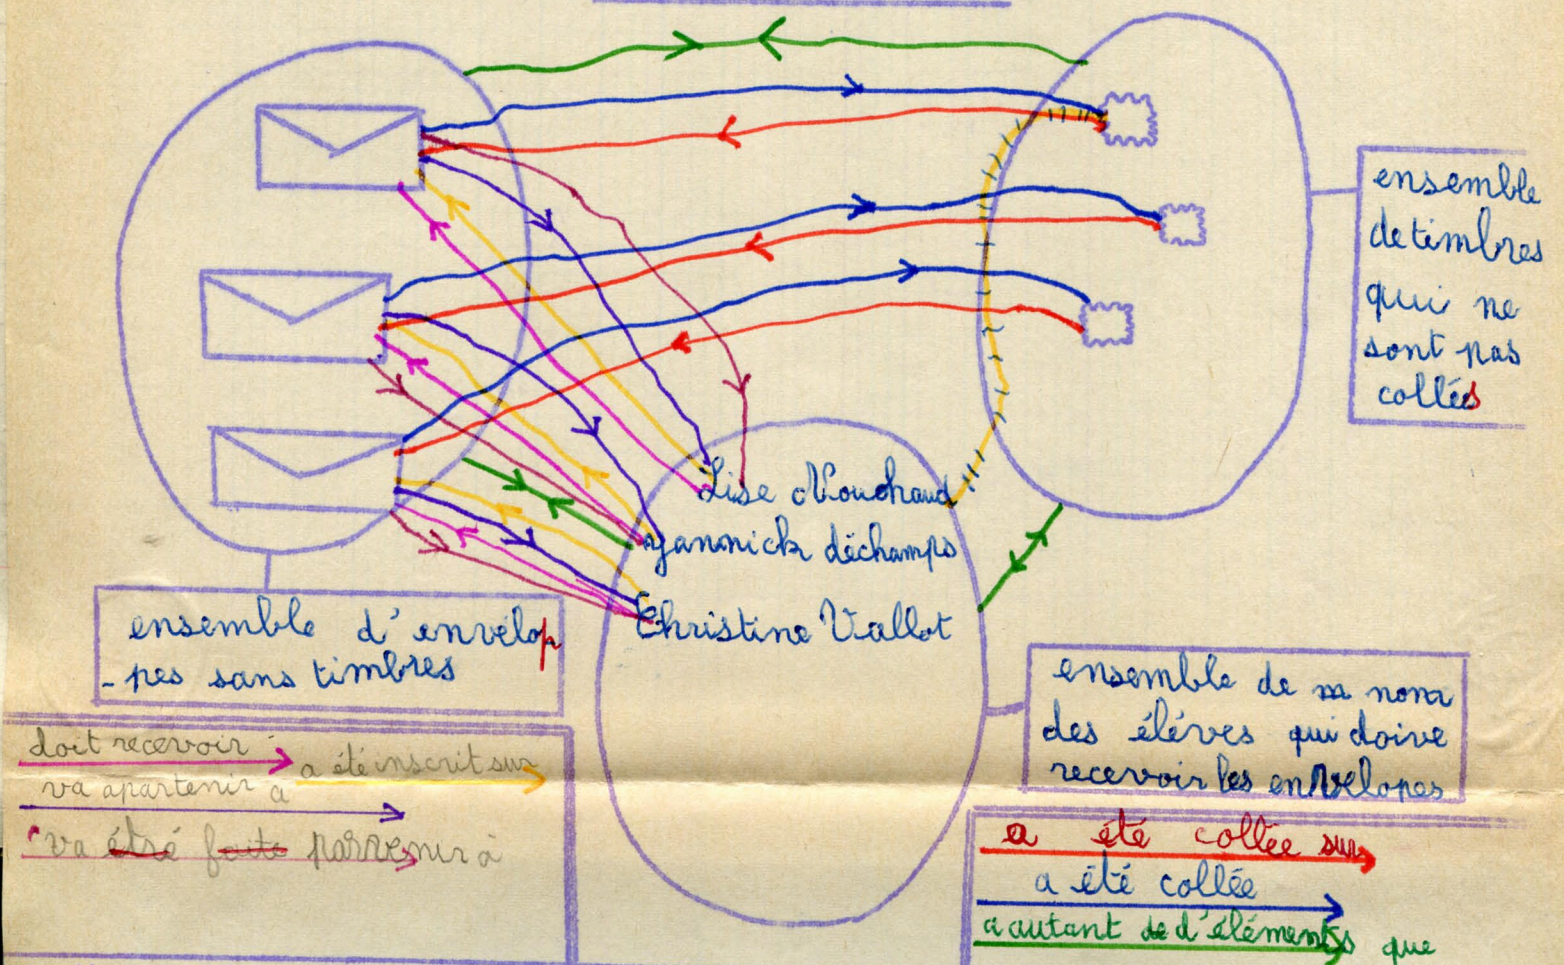 ensemble
de timbres
qui ne
sont pas
collées
Lise Nouchaud
Yannick déchamps
Christine Vallot
ensemble d'envélop
-pes sans timbres
ensemble de nom
des éléves qui doive
recevoir les envelopes
doit recevoir
a été inscrit sur
va apartenir a
va étré faite parvenir à
a été collée sur
a été collée
a autant de d'éléments que